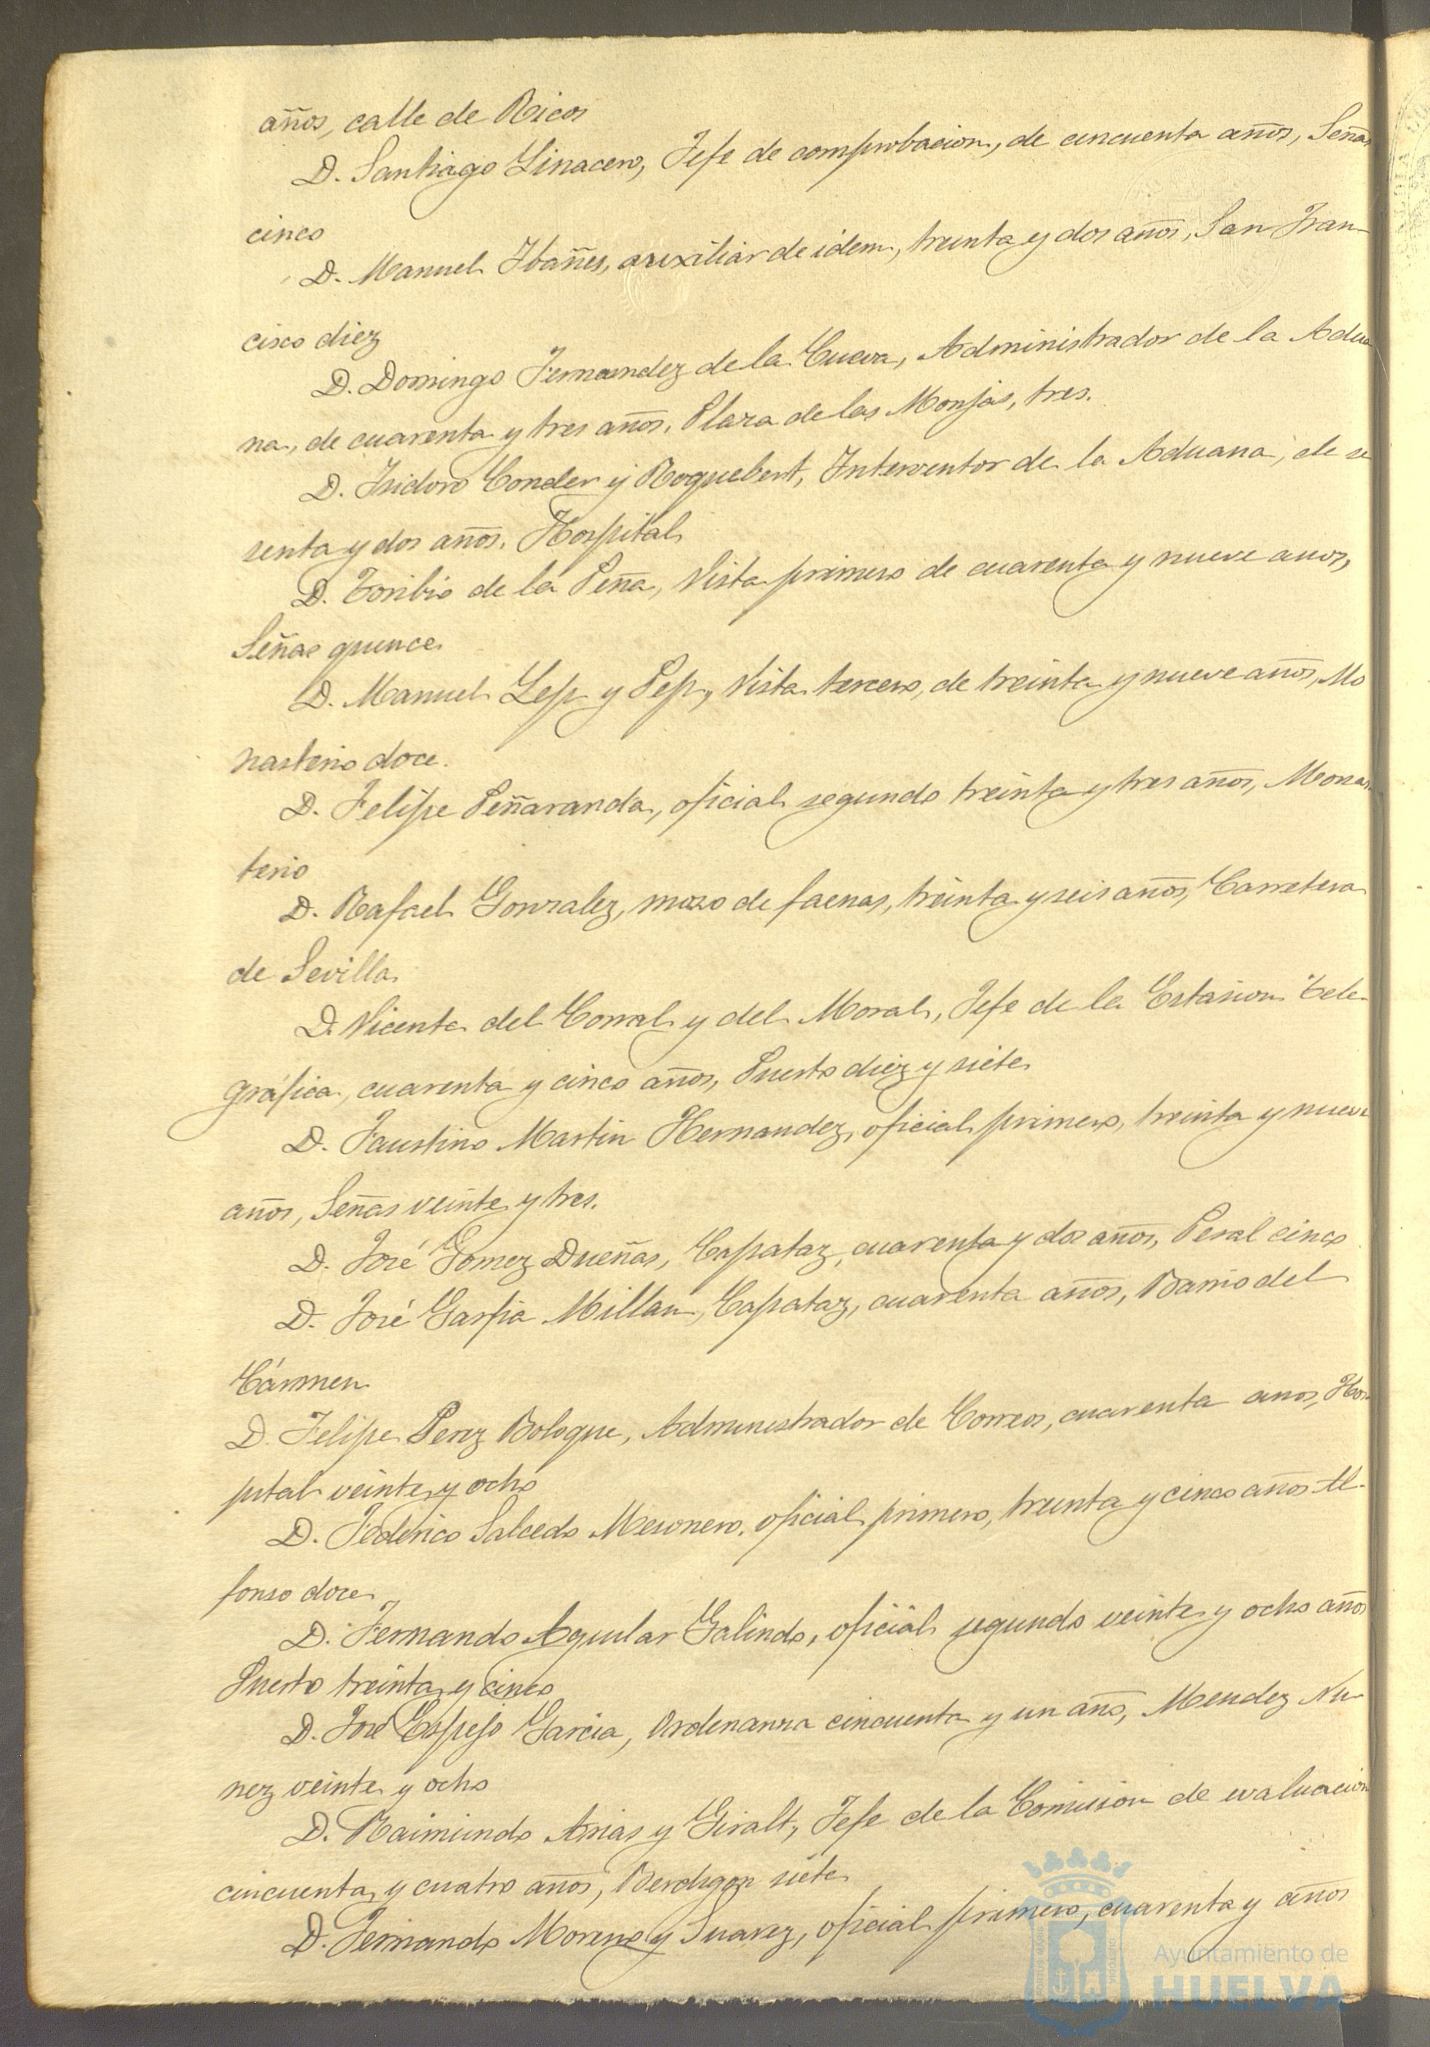 años, calle de Ricos
D. Santiago Linacero, Jefe de comprobacion, de cincuenta años, Señas
cinco
D. Manuel Ibañes, auxiliar de idem, treinta y dos años, San Fran
cisco diez
D. Domingo Fernandez de la Cueva, Administrador de la Adua
na, de cuarenta y tres años, Plaza de las Monjas, tres.
D. Isidoro Conder y Roquebert, Interventor de la Aduana, de se
senta y dos años, Hospital
D. Toribio de la Peña, Vista primero de cuarenta y nueve anos,
Señas quince
D. Manuel y Vista tercero, de treinta y nueve años, Mo
nasterio doce.
D. Felipe Peñaranda, oficial segundo treinta y tres años, Monas
terio
D. Rafael Gonzalez, mozo de faenas, treinta y seis años, Carretera
de Sevilla
D. Vicente del Corral y del Moral, Jefe de la Estasion Tele
gráfica, cuarenta y cinco años, Puerto diez y siete
D. Faustino Martin Hernandez, oficial primero, treinta y nueve
años, Señas veinte y tres.
D. José Gomez Dueñas, Capataz, cuarenta y dos años, Peral cinco
D. José Garfia Millan, Capataz, cuarenta años, Barrio del
Cármen
D. Felipe Perez Bologne, Administrador de Correos, cuarenta anos, Hos
pital veinte y ocho
D. Federico Salcedo Mesonero, oficial primero, treinta y cinco años Al-
fonso doce
D. Fernando Aguilar Galindo, oficial segundo veinte y ocho años
Puerto treinta y cinco
D. José Espejo Garcia, Ordenanza cincuenta y un año, Mendez Nu-
nez veinte y ocho
D. Raimundo Arias y Giralt, Jefe de la Comision de evaluacion
cincuenta y cuatro años, Berdigon siete
D. Fernando Moreno y Suarez, oficial primero, cuarenta y años
Ayuntamiento de
HUELVA